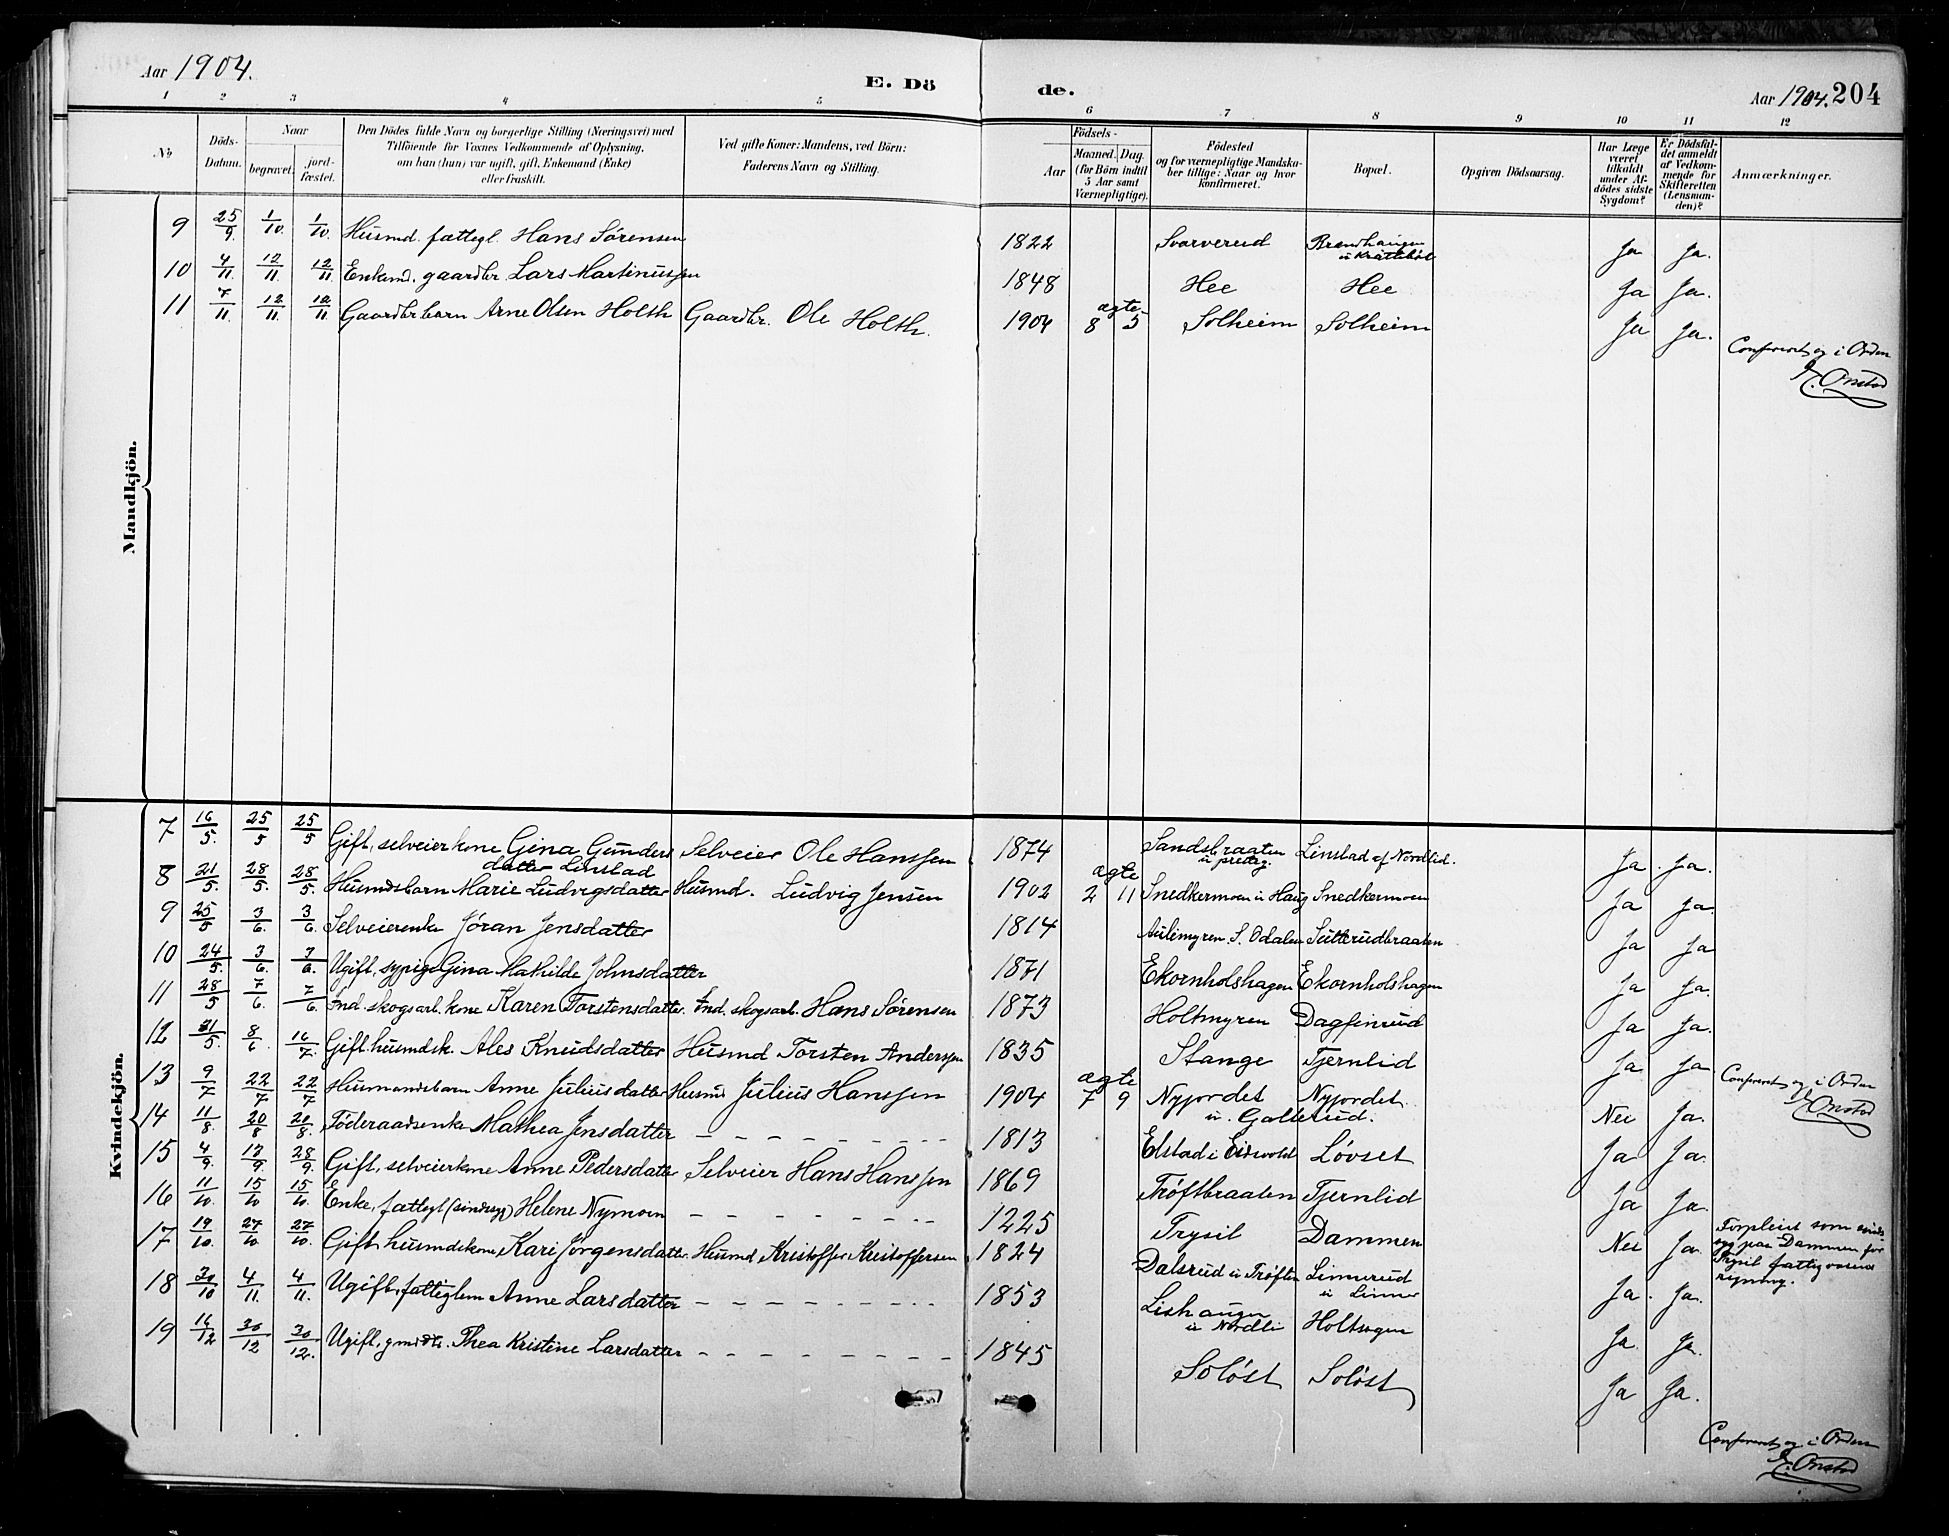 Aar 1904.
E. Dö
de.
Aar 1904. 204
1 2 3 4 5 6 7 8 9 10 11 12
No
Döds-Datum.
Naar
begravet.
jord-fæstet.
Den Dödes fulde Navn og borgerlige Stilling (Næringsvei) med
Tilföiende for Voxnes Vedkommende af Oplysning,
om han (hun) var ugift, gift, Enkemand (Enke)
eller fraskilt.
Ved gifte Koner: Mandens, ved Börn:
Faderens Navn og Stilling.
Födsels-
Aar
Maaned. Dag.
(for Börn indtil
5 Aar samt
Værnepligtige).
Födested
og for værnepligtige Mandska-
ber tillige: Naar og hvor
konfirmeret.
Bopæl.
Opgiven Dödsaarsag.
Har Læge
været
tilkaldt
under Af-
dödes sidste
Sygdom?
Er Dödsfal-
det anmeldt
af Vedkom-
mende for
Skifteretten
(Lensman-
den)?
Anmærkninger.
Mandkjön.
9 25/9. 1/10. 1/10. Husmd. fattegl. Hans Sørensen 1822 Svarverud Brændhaugen Ja Ja.
10 4/11. 12/11 12/11 Enkemd. gaardbr Lars Martinussen 1848 Hee Hee Ja Ja.
11 7/11. 12/11. 12/11 Gaardbr barn Arne Olsen Holth Gaardbr. Ole Holth. 1904 ægte 8 5 Solheim Solheim Ja Ja.
Confereret og i Orden
Onstad
Kvindekjön.
7 16/5. 25/5 25/5 Gift, selveierkone Gina Gunders Selveier Ole Hanssen 1874 Sandsbraaten Linstad af Nordlid. Ja. Ja.
datter Linstad
8 21/5. 28/5. 28/5. Husmdsbarn Marie Ludvigsdatter Husmd. Ludvig Jensen 1902 ægte 2 11 Snedkermoen u Haug Snedkermoen Ja Ja.
9 25/5 3/6. 3/6. Selveierenke Jøran Jensdatter 1814 Aulimyren S. Odalen Sutterudbraaten Ja Ja
10 24/5. 3/6. 3/6. Ugift, sypige Gina Mathilde Johnsdatter 1871 Ekornholshagen Ekornholshagen Ja Ja.
11 28/5 7/6. 7/6 Ind. skogsarb. kone Karen Torstensdatter Ind. skogsarb. Hans Sørensen 1873 Holtmyren Dagfinrud Ja Ja.
12 31/5. 8/6 16/7. Gift. husmdsk. Ales Knudsdatter Husmd Torsten Anderssen 1835 Stange Tjernlid Ja Ja
13 9/7 22/7 22/7 Husmandsbarn Anne Juliusdatter Husmd Julius Hanssen 1904 ægte 7 9 Nyjordet Nyjordet. Nei Ja.
u. Galterud.
Confereret og i Orden
Onstad
14 11/8. 20/8 20/8. Føderaadsenke Mathea Jensdatter – – – – – – – – 1813 Elstad i Eidsvold Løvset Ja Ja.
15 4/9. 12/9. 28/9. Gift, selveierkone Anne Pedersdatter Selveier Hans Hanssen 1869 Trøftbraaten Tjernlid Ja Ja.
16 11/10. 15/10 15/10. Enke, fattegl (sindssyg) Helene Nymoen – – – – – – – – 1225 Trysil Dammen Nei Ja.
Forpleiet som sinds
syg paa Dammen for
Trysil fattigvæsens
regning.
17 19/10. 27/10 27/10. Gift husmdskone, Kari Jørgensdatter. Husmd Kristoffer Kristoffersen 1824 Dalsrud u Trøften Linnerud Ja. Ja.
u Linner
18 30/10 4/11. 4/11. Ugift, fattiglem Anne Larsdatter – – – – – – – – 1853 Lishaugen Holtwgen Ja. Ja.
u Nordli
19 16/12 30/12 30/12. Ugift, Thea Kristine Larsdatter – – – – – – – – 1845 Soløst Soløst Ja Ja.
Confereret og i Orden
Onstad